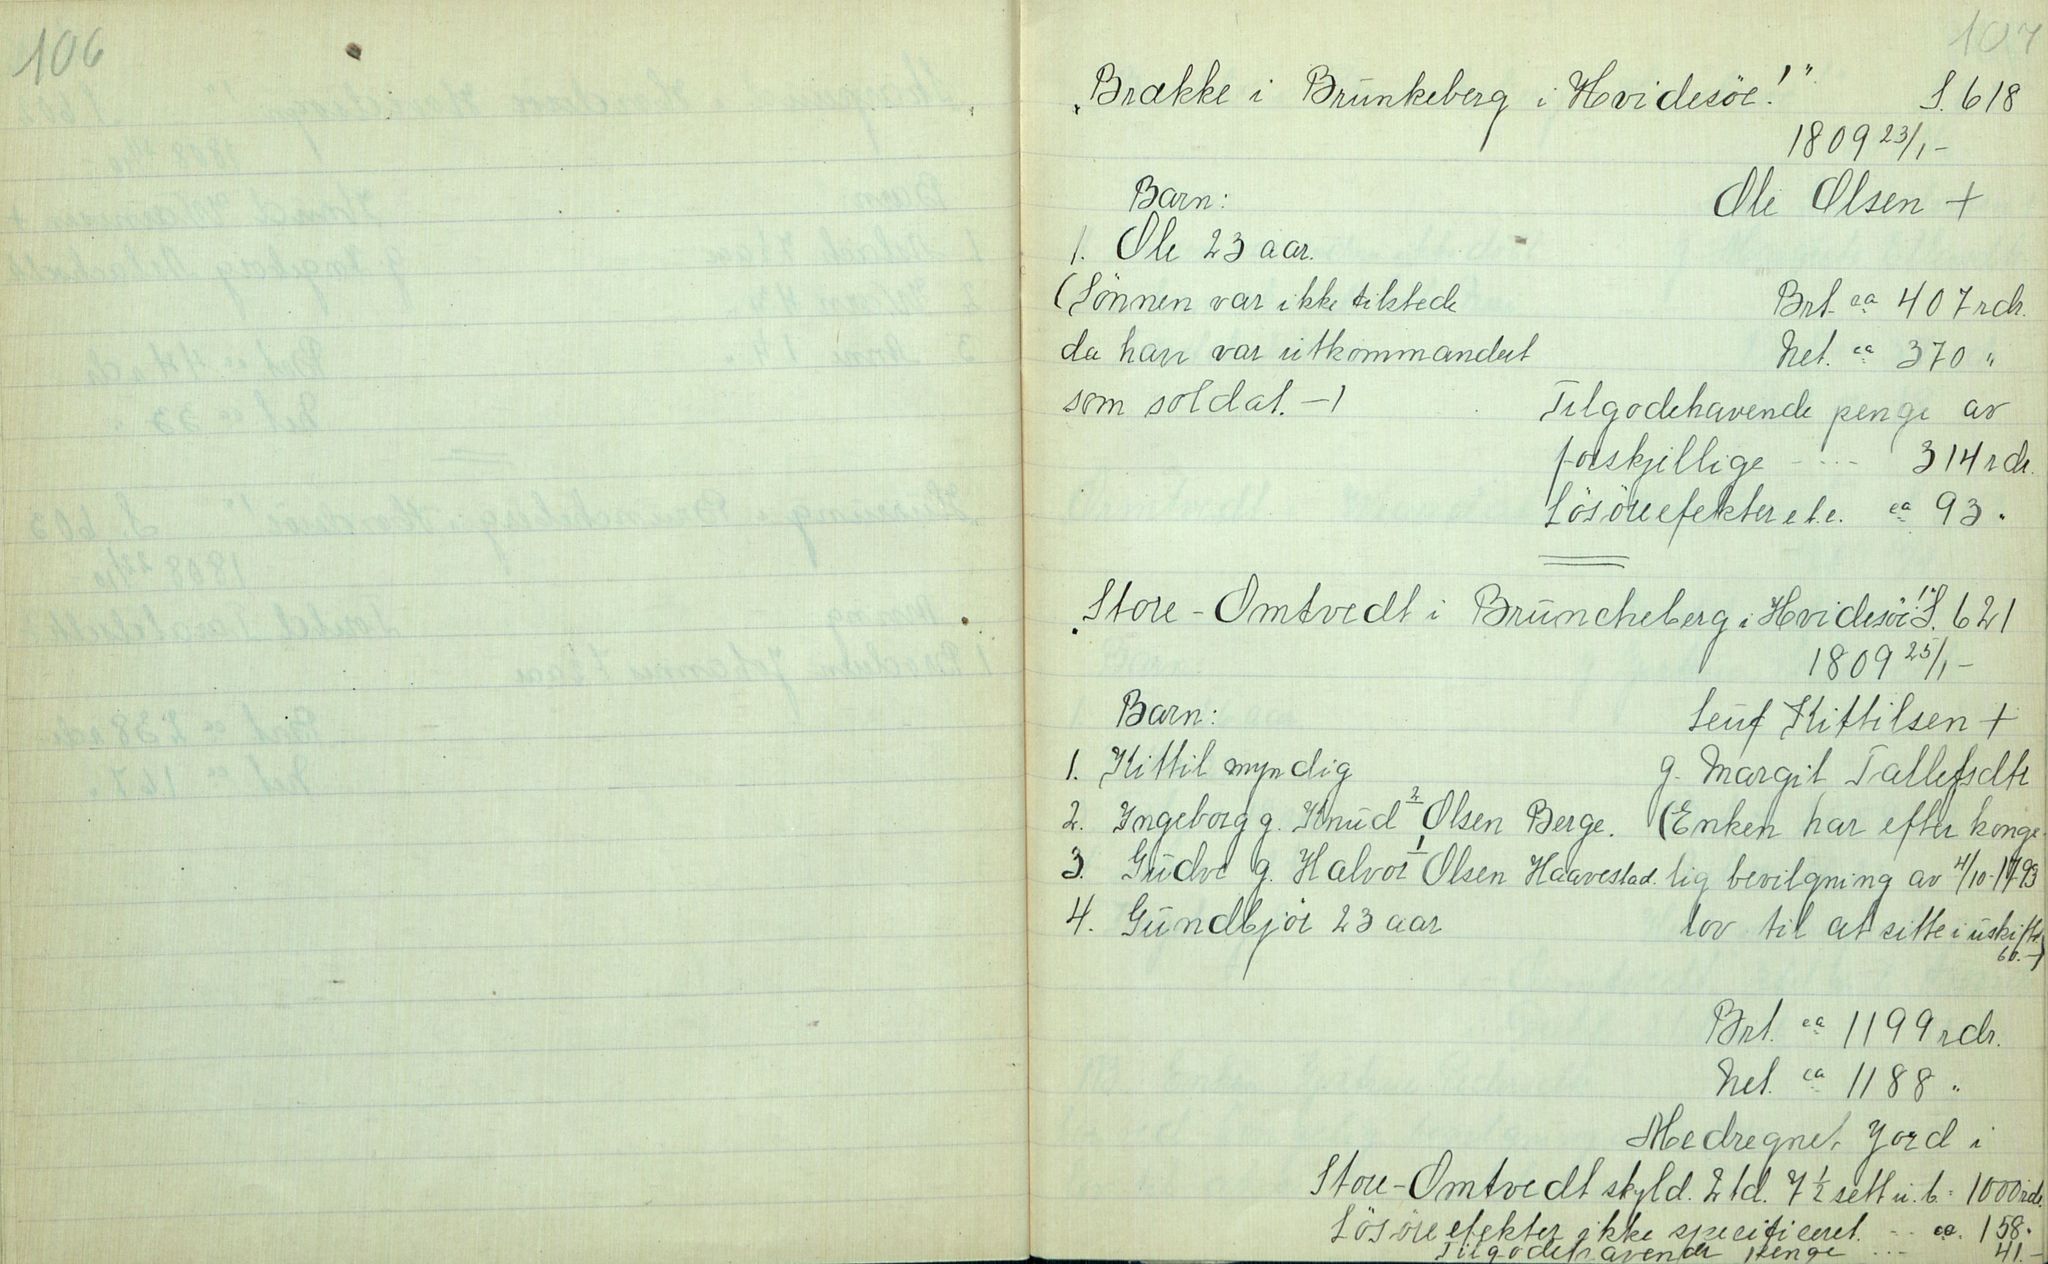 106
107
"Brække i Brunkeberg i Hvidesöe!" S. 618
1809 23/1 -
Barn: Ole Olsen +
1. Ole 23 aar.
(Sönnen var ikke tilstede Brt. ca 407 rdr.
da han var utkommandert Net. ca 370 "
som soldat. -) Tilgodehavende penge av
forskjellige - ... 314 rdr.
Lösöreefekter etc. ca 93 "
"Store-Omtvedt i Bruncheberg i Hvidesöe!" S. 621
1809 25/1 -
Barn: Leuf Kittilsen +
1. Kittil myndig g. Margit Tallefsdtr
2. Ingeborg g. Knud 2/ Olsen Berge. (Enken har efter konge-
3. Gudve g. Halvor 1/ Olsen Haavestad. lig bevilgning av 4/10-1793
4. Gundbjör 23 aar lov til at sitte i uskifte
bo. -)
Brt. ca 1199 rdr.
Net. ca 1188 "
Medregnet Jord i
Store-Omtvedt skyld. 2 td. 7 1/2 sett u. b. 1000 rdr.
Lösöreefekter ikke specificeret. - - ca. 158 "
Tilgodehavende penge ... 41. -